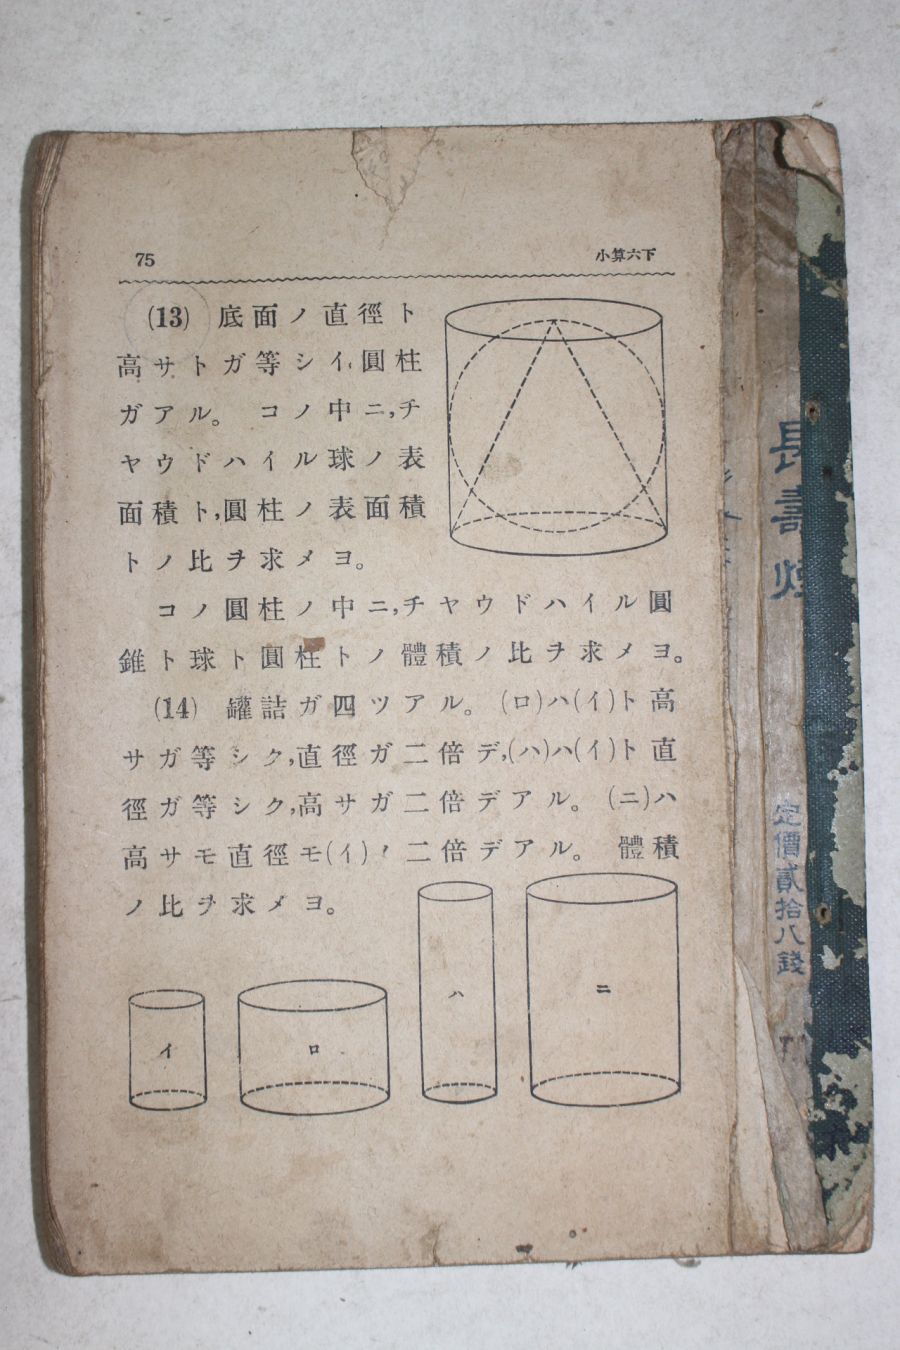 75
小算六下
(13) 底面ノ直徑ト
高サトガ等シイ圓柱
ガアル。 コノ中ニ,チ
ヤウドハイル球ノ表
面積ト,圓柱ノ表面積
トノ比ヲ求メヨ。
コノ圓柱ノ中ニ,チヤウドハイル圓
錐ト球ト圓柱トノ體積ノ比ヲ求メヨ。
(14) 罐詰ガ四ツアル。 (ロ)ハ(イ)ト高
サガ等シク,直徑ガ二倍デ,(ハ)ハ(イ)ト直
徑ガ等シク,高サガ二倍デアル。 (ニ)ハ
高サモ直徑モ(イ)ノ二倍デアル。 體積
ノ比ヲ求メヨ。
イ
ロ
ハ
ニ
長壽煙
定價貳拾八錢